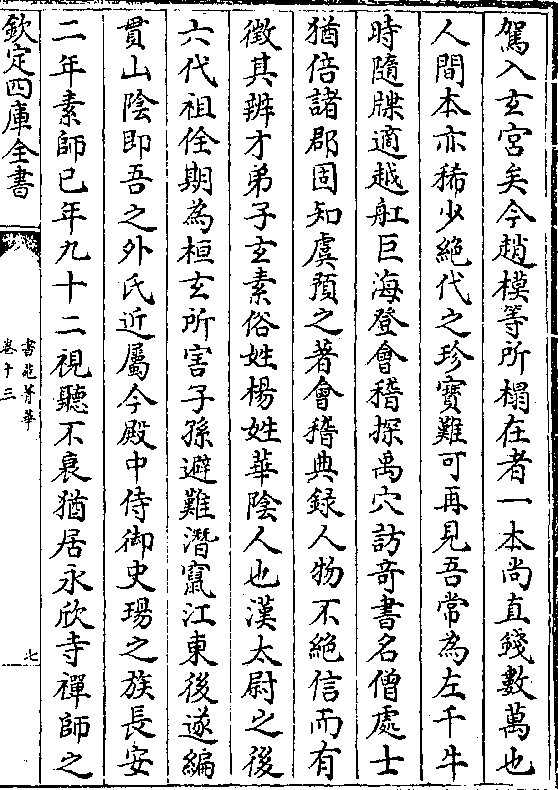 駕入玄宫矣今趙模等所榻在者一本尚直錢數萬也
人間本亦稀少絶代之珍寳難可再見吾常為左千牛
時隨牒適越舡巨海登會稽探禹穴訪竒書名僧處士
猶倍諸郡固知虞預之著會稽典録人物不絶信而有
徴其辨才弟子玄素俗姓楊姓華陰人也漢太尉之後
六代祖佺期為桓玄所害子孫避難潛竄江東後遂編
貫山陰即吾之外氏近屬今殿中侍御史瑒之族長安
二年素師已年九十二視聽不衰猶居永欣寺禪師之
欽定四庫全書
書苑菁華
卷十三
七